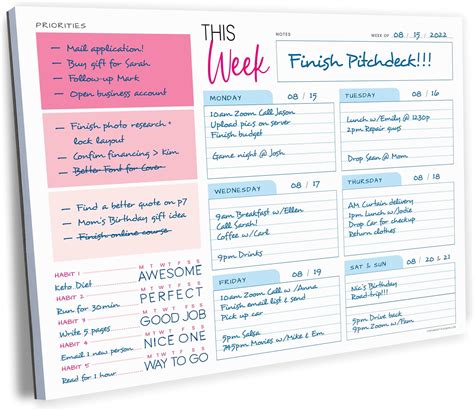 PRIORITIES
- Mail application!
- Buy gift for Sarah
- Follow-up Mark
- Open business account
- Finish photo research +
lock layout
- Confirm financing > Kim
- Better Font for Cover
- Find a better quote on p7
- Mom's Birthday gift idea
- Finish online course
HABIT 1 M T W T F S S
Keto Diet AWESOME
HABIT 2 M T W T F S S
Run for 30min PERFECT
HABIT 3 M T W T F S S
Write 5 pages GOOD JOB
HABIT 4 M T W T F S S
Email 1 new person NICE ONE
HABIT 5 M T W T F S S
Read for 1 hour WAY TO GO
THIS
Week
NOTES
WEEK OF 08 / 15 / 2022
Finish Pitchdeck!!!
MONDAY 08 / 15
10am Zoom Call Jason
Upload pics on server
Finish budget
Game night @ Josh
TUESDAY 08 / 16
Lunch w/Emily @ 1230p
2pm Repair guys
Drop Sean @ Mom
WEDNESDAY 08 / 17
9am Breakfast w/Ellen
Call Sarah!
9pm Drinks
THURSDAY 08 / 18
AM Curtain delivery
1pm Lunch w/Jodie
Drop Car for checkup
Return clothes
FRIDAY 08 / 19
2am Zoom Call w/Anna
Finish email list & send
Pick up car
5pm Salsa
745pm Movies w/Mike & Em
SAT & SUN 08 / 20 & 21
Nic's Birthday
Road-trip!!!
5pm Drive back
9pm Movie